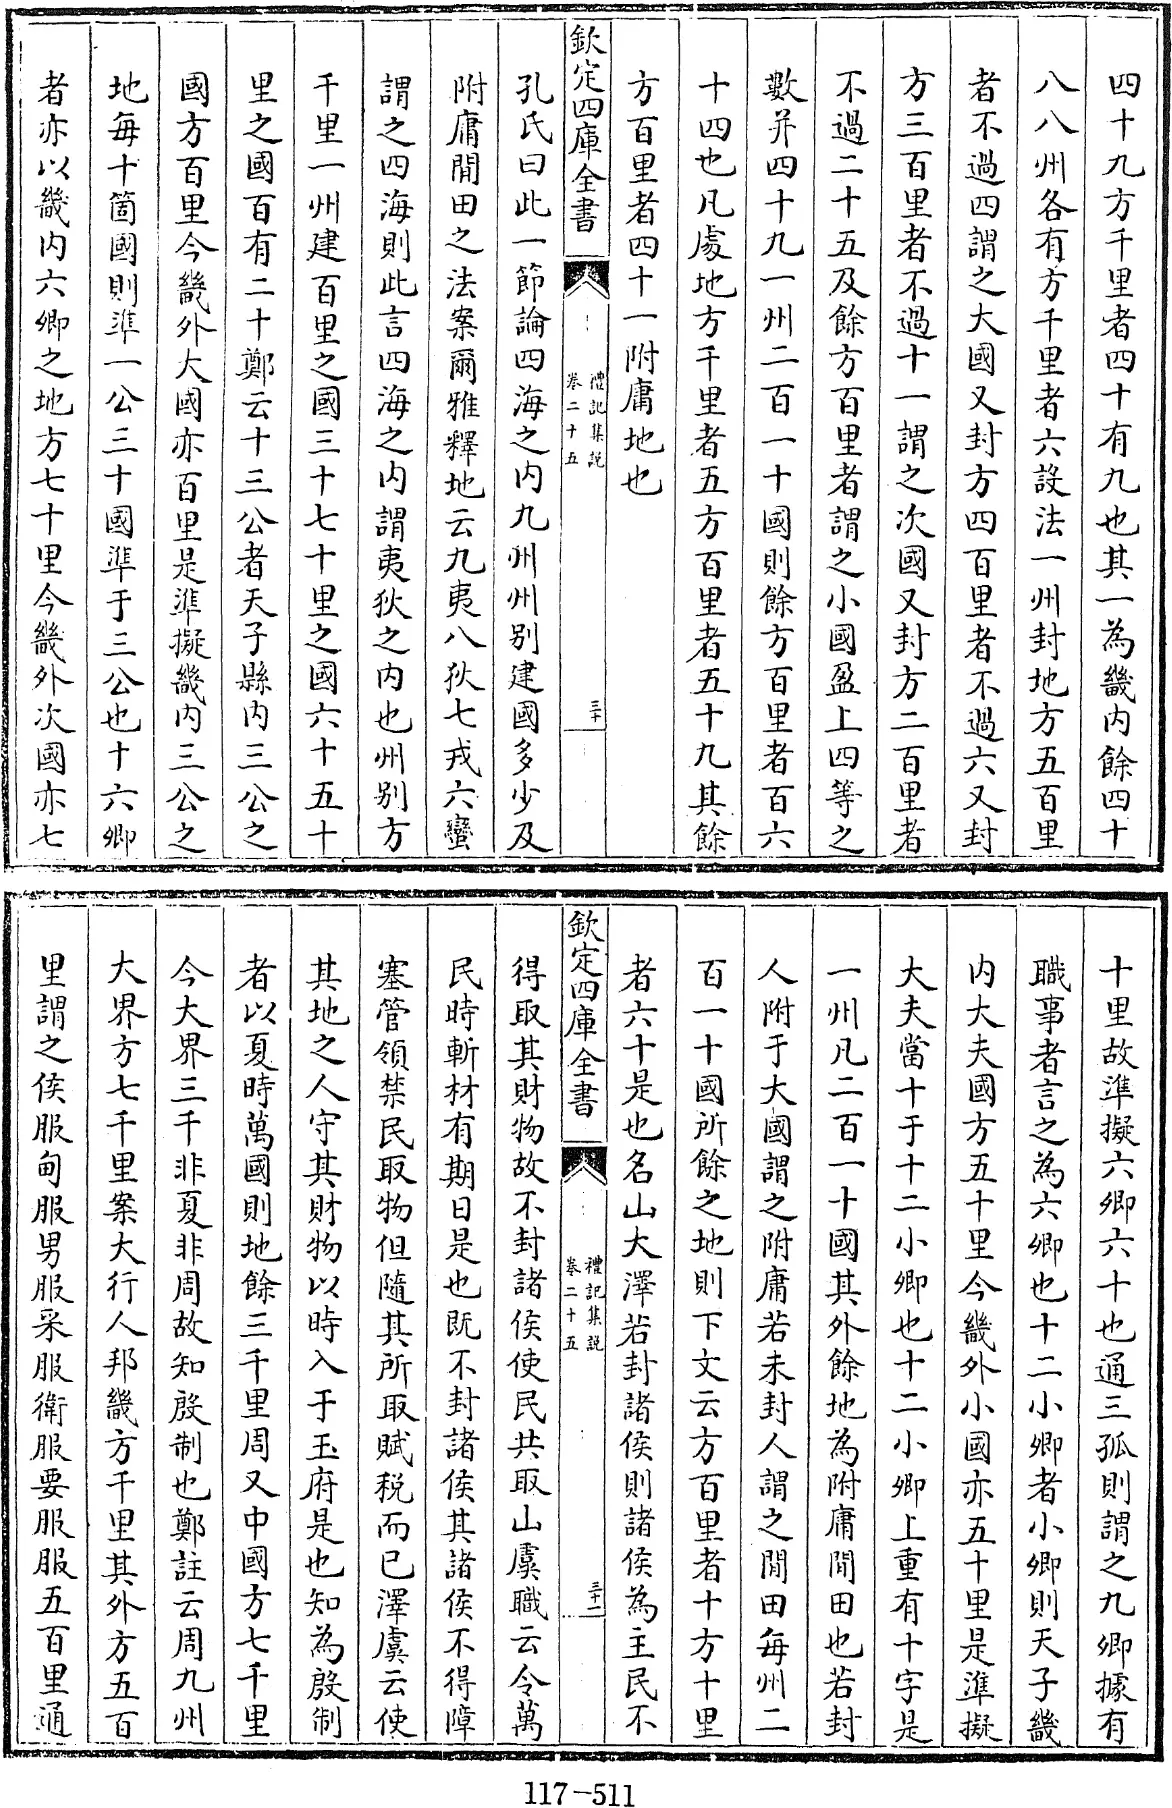 四十九方千里者四十有九也其一為畿内餘四十
八八州各有方千里者六設法一州封地方五百里
者不過四謂之大國又封方四百里者不過六又封
方三百里者不過十一謂之次國又封方二百里者
不過二十五及餘方百里者謂之小國盈上四等之
數并四十九一州二百一十國則餘方百里者百六
十四也凡處地方千里者五方百里者五十九其餘
方百里者四十一附庸地也
欽定四庫全書
禮記集説
卷二十五
三十
孔氏曰此一節論四海之内九州州别建國多少及
附庸閒田之法案爾雅釋地云九夷八狄七戎六蠻
謂之四海則此言四海之内謂夷狄之内也州别方
千里一州建百里之國三十七十里之國六十五十
里之國百有二十鄭云十三公者天子縣内三公之
國方百里今畿外大國亦百里是準擬畿内三公之
地每十箇國則準一公三十國準于三公也十六卿
者亦以畿内六卿之地方七十里今畿外次國亦七
十里故準擬六卿六十也通三孤則謂之九卿據有
職事者言之為六卿也十二小卿者小卿則天子畿
内大夫國方五十里今畿外小國亦五十里是準擬
大夫當十于十二小卿也十二小卿上重有十字是
一州凡二百一十國其外餘地為附庸閒田也若封
人附于大國謂之附庸若未封人謂之閒田每州二
百一十國所餘之地則下文云方百里者十方十里
者六十是也名山大澤若封諸侯則諸侯為主民不
欽定四庫全書
禮記集説
卷二十五
三十一
得取其財物故不封諸侯使民共取山虞職云令萬
民時斬材有期日是也既不封諸侯其諸侯不得障
塞管領禁民取物但隨其所取賦税而已澤虞云使
其地之人守其財物以時入于玉府是也知為殷制
者以夏時萬國則地餘三千里周又中國方七千里
今大界三千非夏非周故知殷制也鄭註云周九州
大界方七千里案大行人邦畿方千里其外方五百
里謂之侯服甸服男服采服衛服要服服五百里通
117-511